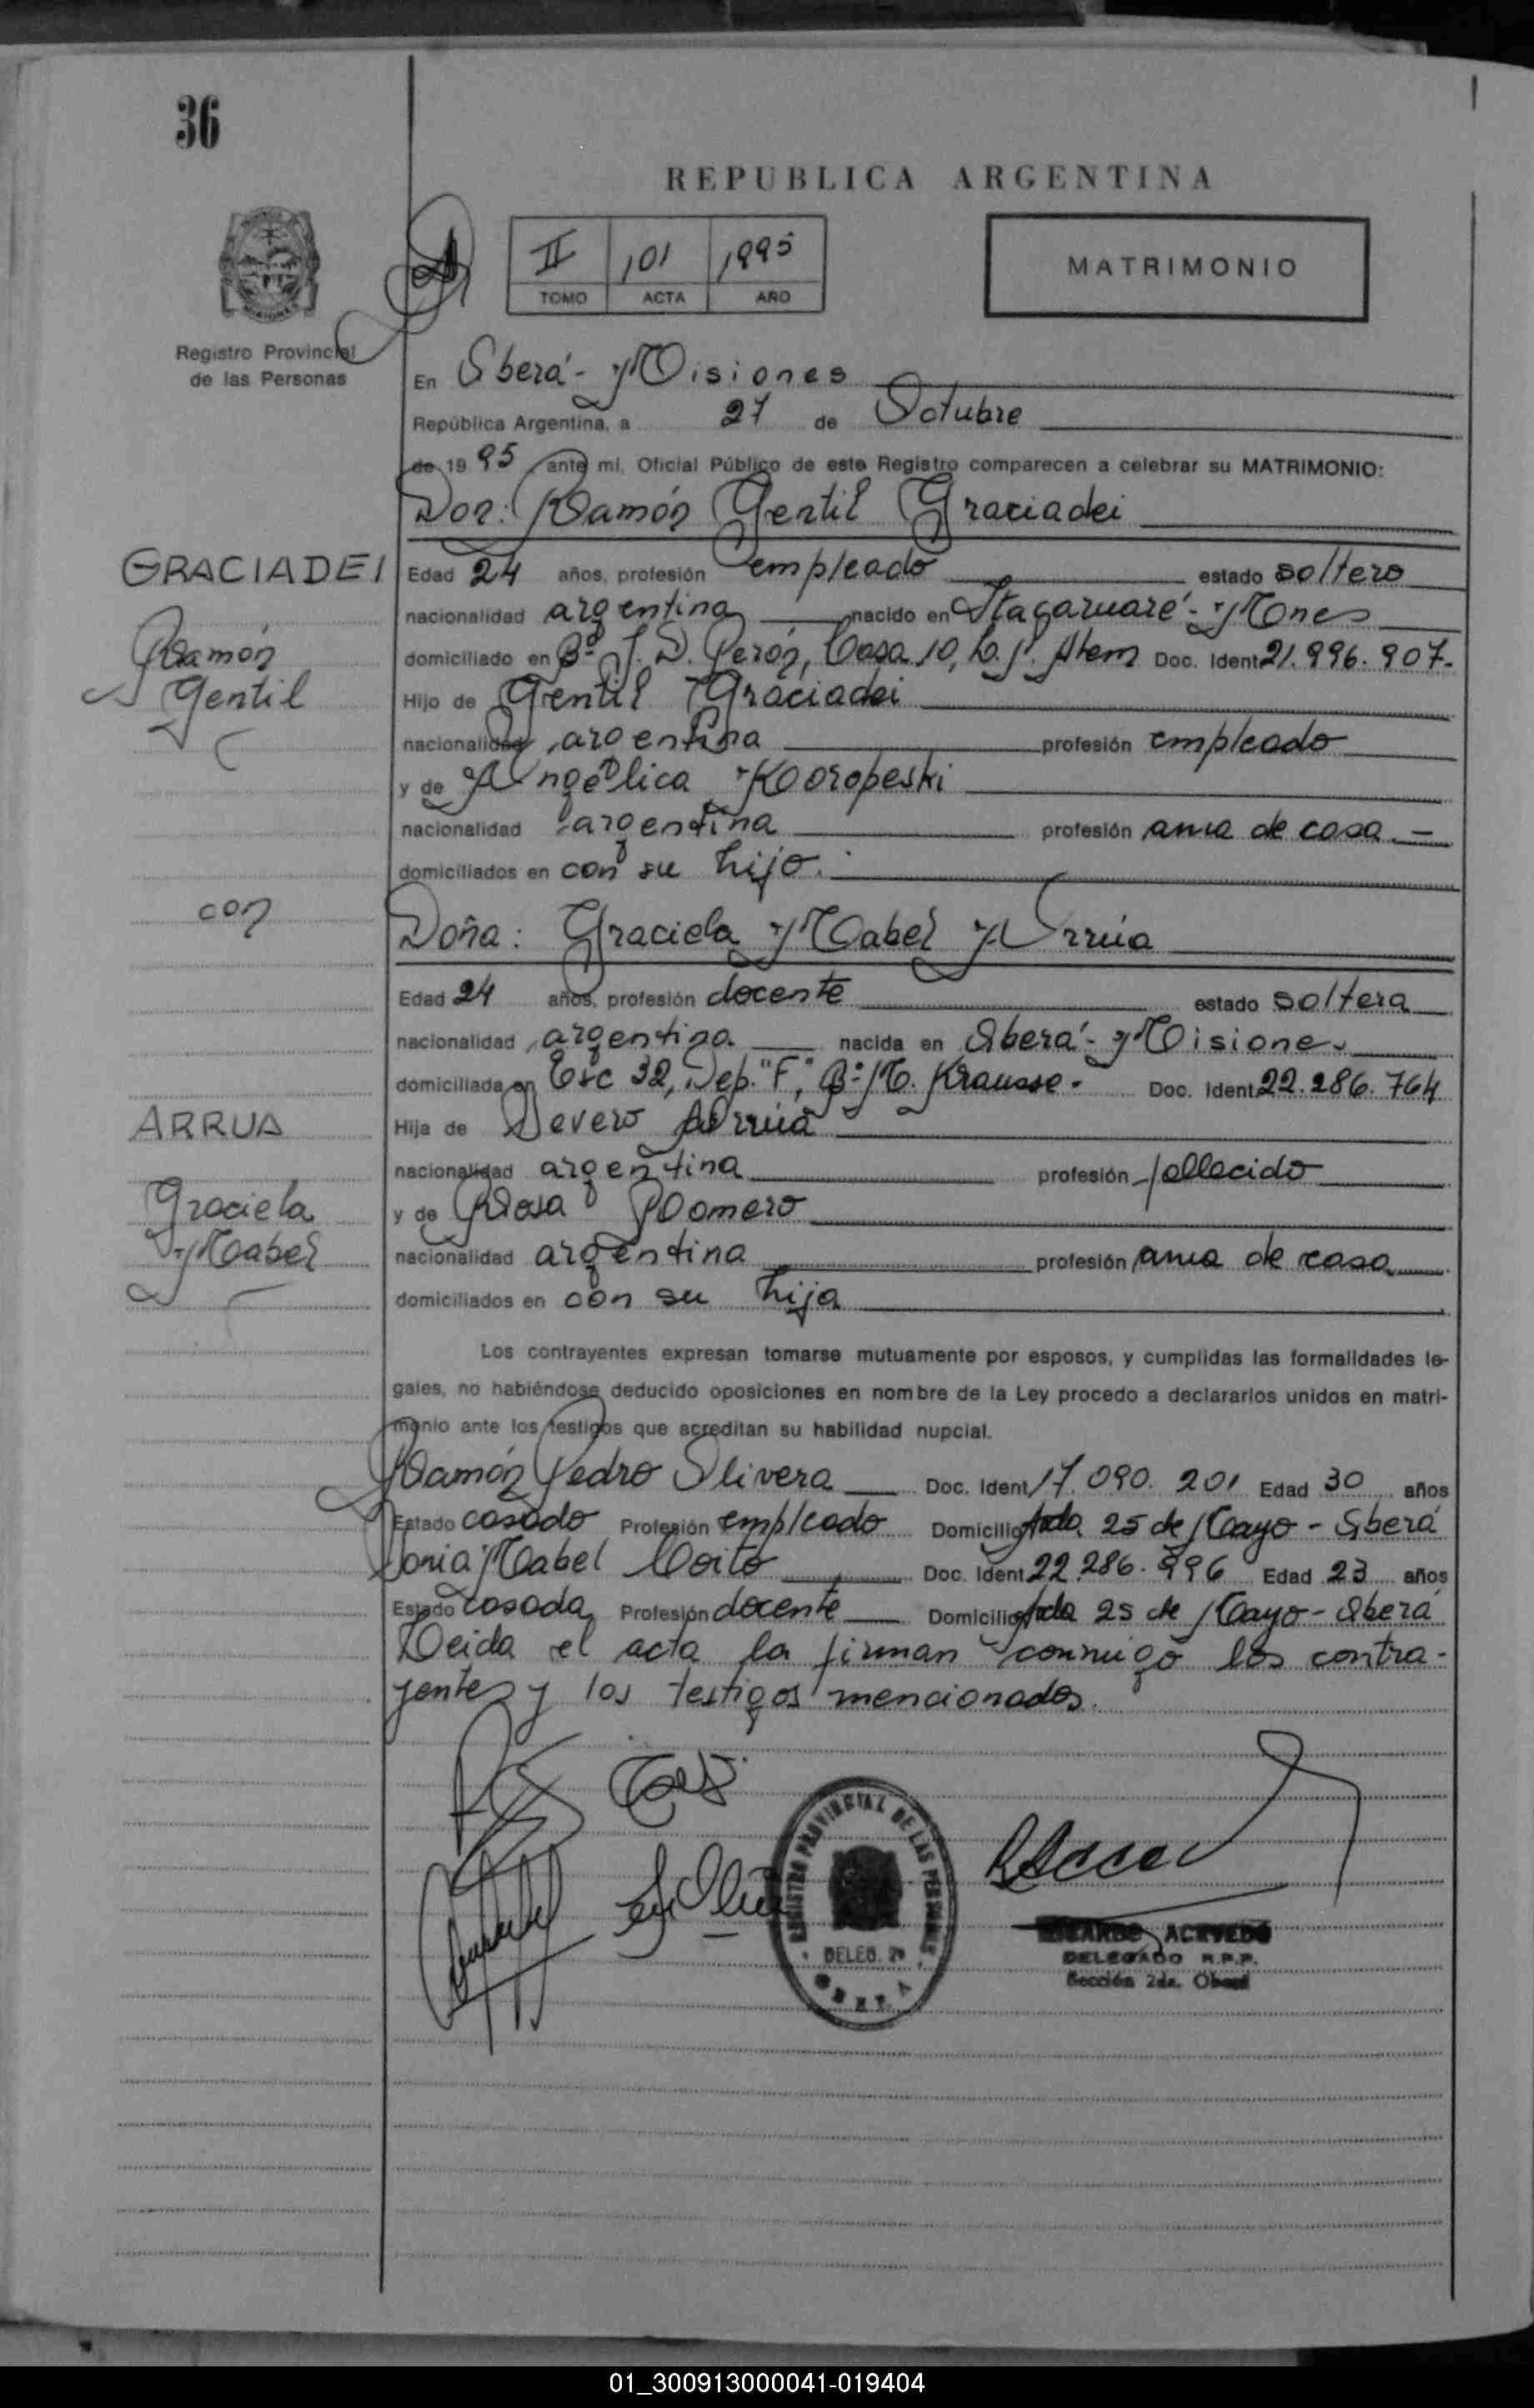 36
REPUBLICA ARGENTINA
II 101 1995
TOMO ACTA AÑO
MATRIMONIO
Registro Provincial
de las Personas
En Oberá - Misiones
República Argentina, a 27 de Octubre
de 1995 ante mi, Oficial Público de este Registro comparecen a celebrar su MATRIMONIO:
Don: Ramón Gentil Graciadei
GRACIADEI
Edad 24 años, profesión empleado estado soltero
nacionalidad argentina nacido en Itacaruaré - Mnes
Ramón
domiciliado en Bº J. D. Perón, Casa 10, L. N. Alem Doc. Ident 21.996.907-
Gentil
Hijo de Gentil Graciadei
nacionalidad argentina profesión empleado
y de Angélica Koropeski
nacionalidad argentina profesión ama de casa -
domiciliados en con su hijo.
con
Doña: Graciela Mabel Arrúa
Edad 24 años, profesión docente estado soltera
nacionalidad argentina nacida en Oberá - Misiones
domiciliada en Esc 32, Dep. "F", Bº M. Krausse - Doc. Ident 22.286.764
ARRUA
Hija de Severo Arrúa
nacionalidad argentina profesión fallecido
Graciela
y de Rosa Romero
Mabel
nacionalidad argentina profesión ama de casa
domiciliados en con su hija
Los contrayentes expresan tomarse mutuamente por esposos, y cumplidas las formalidades le-
gales, no habiéndose deducido oposiciones en nombre de la Ley procedo a declararlos unidos en matri-
monio ante los testigos que acreditan su habilidad nupcial.
Ramón Pedro Olivera Doc. Ident 17.090.201 Edad 30 años
Estado casado Profesión empleado Domicilio Avda 25 de Mayo - Oberá
Sonia Mabel Doc. Ident 22.286.996 Edad 23 años
Estado casada Profesión docente Domicilio Avda 25 de Mayo - Oberá
Leida el acta la firman conmigo los contra-
yentes y los testigos mencionados.
REGISTRO PROVINCIAL DE LAS PERSONAS
DELEG. 2ª
OBERA
RICARDO ACEVEDO
DELEGADO R.P.P.
Sección 2da. Oberá
01_300913000041-019404